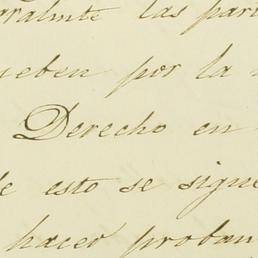 rralmte las par
ueben por la
Derecho en
e esto se sigue
hacer proban